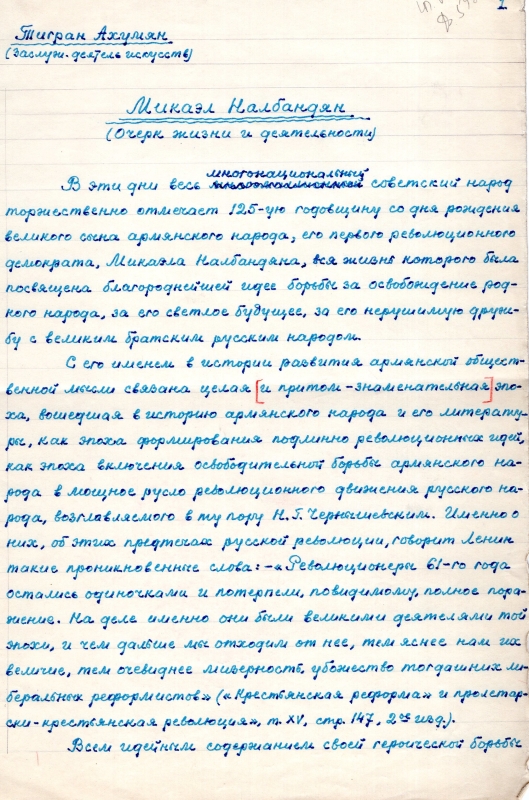 1.
Тигран Ахумян
(Заслуж. деятель искусств)
Микаэл Налбандян
(Очерк жизни и деятельности)
многонациональный
В эти дни весь советский народ
торжественно отмечает 125-ую годовщину со дня рождения
великого сына армянского народа, его первого революционного
демократа, Микаэла Налбандяна, вся жизнь которого была
посвящена благороднейшей идее борьбы за освобождение род-
ного народа, за его светлое будущее, за его нерушимую друж-
бу с великим братским русским народом.
С его именем в истории развития армянской общест-
венной мысли связана целая [и притом – знаменательная] эпо-
ха, вошедшая в историю армянского народа и его литерату-
ры, как эпоха формирования подлинно революционных идей,
как эпоха включения освободительной борьбы армянского на-
рода в мощное русло революционного движения русского на-
рода, возглавляемого в ту пору Н. Г. Чернышевским. Именно о
них, об этих предтечах русской революции, говорит Ленин
такие проникновенные слова: – «Революционеры 61-го года
остались одиночками и потерпели, повидимому, полное пора-
жение. На деле именно они были великими деятелями той
эпохи, и чем дальше мы отходим от нее, тем яснее нам их
величие, тем очевиднее мизерность, убожество тогдашних ли-
беральных реформистов» («Крестьянская реформа» и пролетар-
ски-крестьянская революция», т. XV, стр. 147, 2ое изд.).
Всем идейным содержанием своей героической борьбы